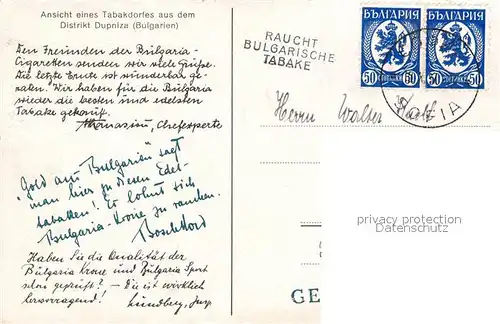 Ansicht eines Tabakdorfes aus dem
Distrikt Dupniza (Bulgarien)
Den Freunden der Bulgaria-
Cigaretten senden wir viele Grüße.
Die letzte Ernte ist wunderbar ge-
raten! Wir haben für die Bulgaria
wieder die besten und edelsten
Tabake gekauft.
Athanasiu, Chefexperte
"Gold aus Bulgarien" sagt
man hier zu diesen Edel-
tabaken! Es lohnt sich
Bulgaria-Krone zu rauchen.
Haben Sie die Qualität der
Bulgaria Krone und Bulgaria Sport
schon geprüft? – die ist wirklich
hervorragend! Lundberg,
RAUCHT
BULGARISCHE
TABAKE
БЪЛГАРИЯ
50 СТОТИНКИ 50
БЪЛГАРИЯ
50 СТОТИНКИ 50
Herrn Walter
privacy protection
Datenschutz
GE